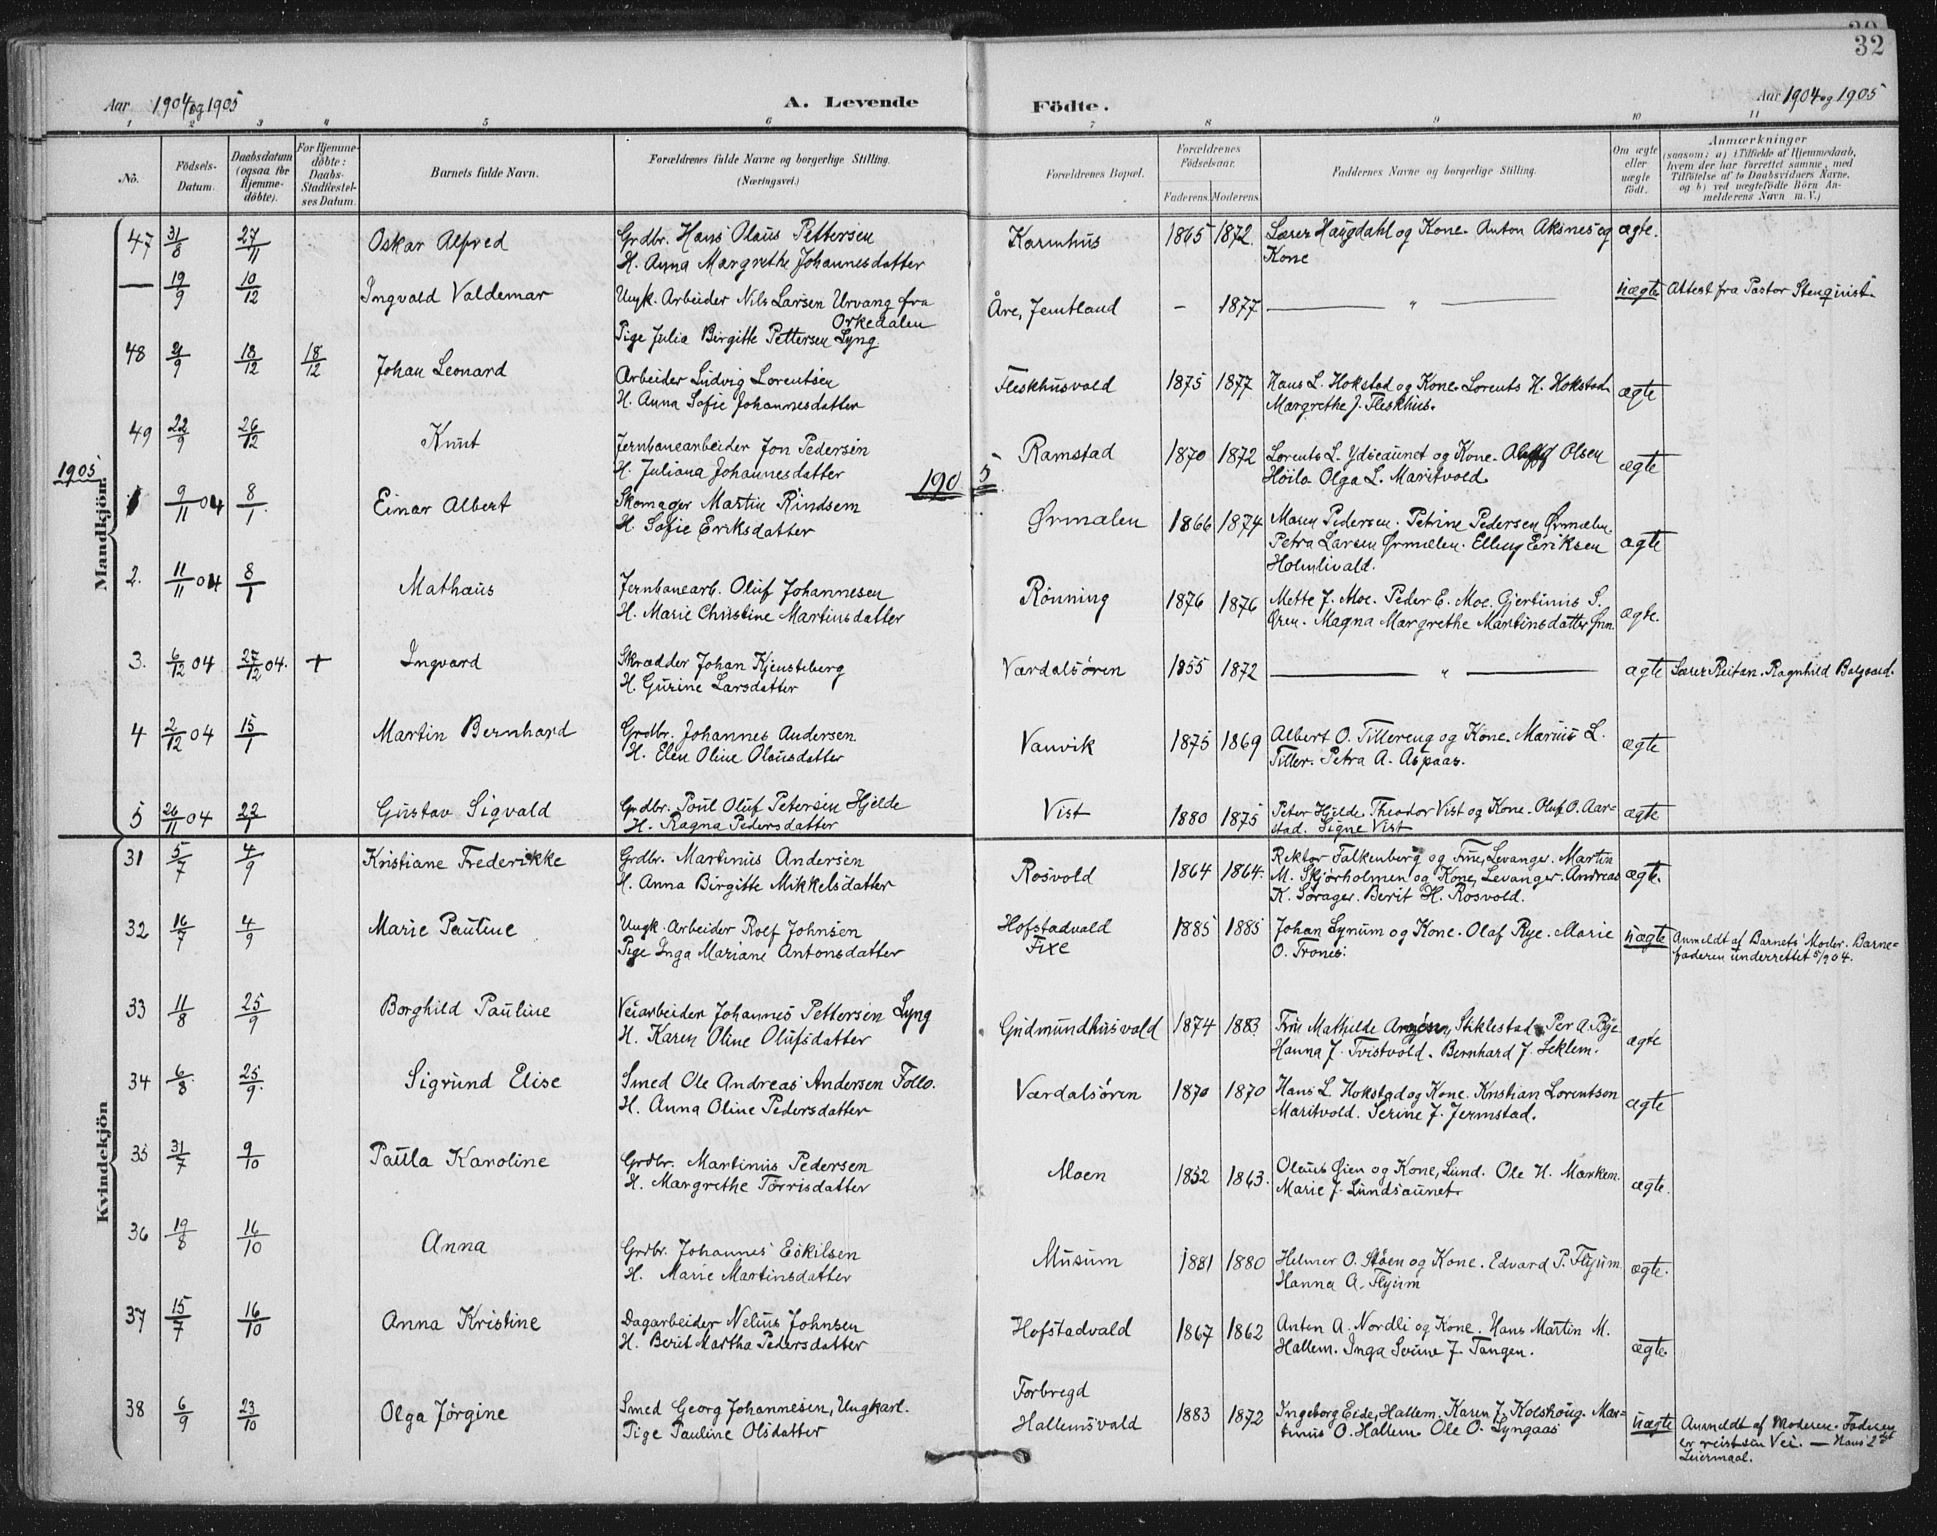 32
Aar 1904 og 1905
A. Levende
Födte.
Aar 1904 og 1905
1 2 3 4 5 6 7 8 9 10 11
No.
Födsels-Datum.
Daabsdatum (ogsaa for Hjemme-döbte).
For Hjemme-döbte: Daabs-Stadfæstel-ses Datum.
Barnets fulde Navn.
Forældrenes fulde Navne og borgerlige Stilling. (Næringsvei.)
Forældrenes Bopæl.
Forældrenes Födselsaar.
Faderens. Moderens.
Faddernes Navne og borgerlige Stilling.
Om ægte eller uægte födt.
Anmærkninger
(saasom: a) i Tilfælde af Hjemmedaab, hvem der har forrettet samme, med Tilföielse af to Daabsvidners Navne, og b) ved uægtefödte Börn Anmelderens Navn m. V.)
Mandkjön
47 31/8 27/11 Oskar Alfred Grdbr. Hans Olaus Pettersen Karmhus 1865 1872 Lærer Haugdahl og Kone. Anton Aksnes og ægte.
H. Anna Margrethe Johannesdatter Kone
— 19/9 10/12 Ingvald Valdemar Ungk. Arbeider Nils Larsen Urvang fra Orkedalen Åre, Jemtland – 1877 — " — uægte Attest fra Pastor Stenquist
Pige Julia Birgitte Pettersen Lyng
48 21/9 18/12 18/12 Johan Leonard Arbeider Ludvig Lorentsen Fleskhusvald 1875 1877 Hans L. Hokstad og Kone. Lorents H. Hokstad ægte
H. Anna Sofie Johannesdatter Margrethe J. Fleskhus.
49 22/9 26/12 Knut Jernbanearbeider Jon Pedersen Ramstad 1870 1872 Lorents L. Ydseaunet og Kone. Olsen ægte
H. Juliana Johannesdatter Höilo Olga L. Maritvold
1905
1905
1 9/11 04 8/1 Einar Albert Skomager Martin Rindsem Ørmælen 1866 1874 Maren Pedersen. Petrine Pedersen Ørmælen. ægte
H. Sofie Eriksdatter Petra Larsen Ørmælen. Elling Eriksen
Holmlivald.
2. 11/11 04 8/1 Mathæus Jernbanearb. Oluf Johannesen Rönning 1876 1876 Mette J. Moe. Peder E. Moe. Gjertinus S. ægte.
H. Marie Christine Martinsdatter Øren. Magna Margrethe Martinsdatter
3. 6/12 04 27/12 04. + Ingvard Skrædder Johan Kjensteberg Værdalsören 1855 1872 — " — ægte Lærer Reitan. Ragnhild Balgaard.
H. Gurine Larsdatter
4 2/12 04 15/1 Martin Bernhard Grdbr. Johannes Andersen Vanvik 1875 1869 Albert O. Tillereng og Kone. Marius L. ægte
H. Elen Oline Olausdatter Tiller. Petra A. Aspaas.
5 26/11 04 22/1 Gustav Sigvald Grdbr. Poul Oluf Petersen Hjelde Vist 1880 1875 Peter Hjelde. Theodor Vist og Kone. Oluf O. Aar= ægte
H. Ragna Pedersdatter stad. Signe Vist
Kvindekjön
31 5/7 4/9 Kristiane Frederikke Grdbr. Martinus Andersen Rosvold 1864 1864. Rektor Falkenberg og Frue, Levanger. Martin ægte.
H. Anna Birgitte Mikkelsdatter M. Skjörholmen og Kone, Levanger. Andreas
K. Sörager. Berit H. Rosvold.
32 16/7 4/9 Marie Pauline Ungk. Arbeider Rolf Johnsen Hofstadvald 1885 1885 Johan Lynum og Kone. Olaf Rye. Marie uægte Anmeldt af Barnets Moder. Barne=
Pige Inga Mariane Antonsdatter Fixe O. Trones. faderen underrettet 5/9 04.
33 11/8 25/9 Borghild Pauline Veiarbeider Johannes Pettersen Lyng Gudmundhusvald 1874 1883 Frue Mathilde Stiklestad. Per A. Bye ægte
H. Karen Oline Olufsdatter Hanna J. Tvistvold. Bernhard J. Leklem.
34 6/8 25/9. Sigrund Elise Smed Ole Andreas Andersen Follo. Værdalsören 1870 1870 Hans L. Hokstad og Kone. Kristian Lorentsen ægte
H. Anna Oline Pedersdatter Maritvold. Serine J. Jermstad.
35 31/7 9/10 Paula Karoline Grdbr. Martinus Pedersen Moen 1852 1863. Olaus Øien og Kone, Lund. Ole H. Markem. ægte.
H. Margrethe Törrisdatter Marie J. Lundsaunet
36 19/8 16/10 Anna Grdbr. Johannes Eskilsen Musum 1881 1880 Helmer O. Stöen og Kone. Edvard P. Flyum ægte.
H. Marie Martinsdatter Hanna A. Flyum
37 15/7 16/10 Anna Kristine Dagarbeider Nelius Johnsen Hofstadvald 1867 1862 Anton A. Nordli og Kone. Hans Martin M. ægte.
H. Berit Martha Pedersdatter Hallem. Inga Serine J. Tangen.
38 6/9 23/10 Olga Jörgine Smed Georg Johannesen, Ungkarl. Forbregd 1883 1872 Ingeborg Eide, Hallem. Karen J. Kolshoug. Mar= uægte Anmeldt af Moderen. Faderen
Pige Pauline Olsdatter Hallemsvald tinus O. Hallem. Ole O. Lyngaas er reist sin Vei. — Hans 2det
Leiermaal.